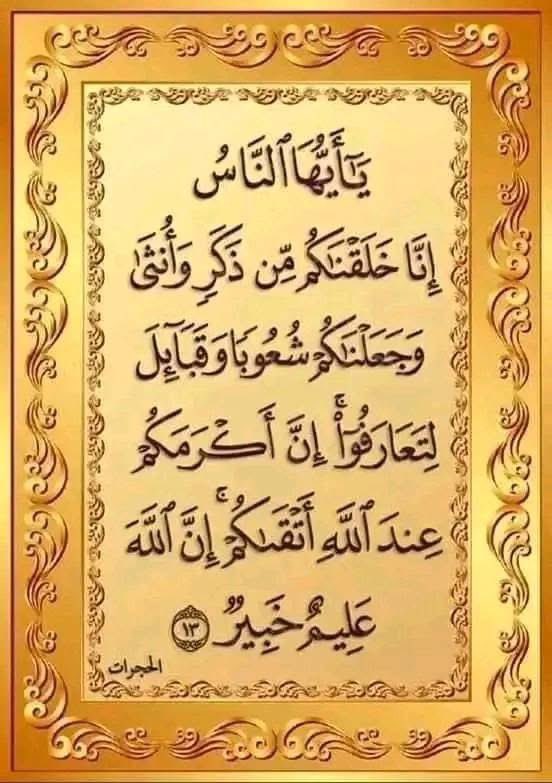 يَٰٓأَيُّهَا ٱلنَّاسُ
إِنَّا خَلَقْنَٰكُم مِّن ذَكَرٍ وَأُنثَىٰ
وَجَعَلْنَٰكُمْ شُعُوبًا وَقَبَآئِلَ
لِتَعَارَفُوٓا۟ ۚ إِنَّ أَكْرَمَكُمْ
عِندَ ٱللَّهِ أَتْقَىٰكُمْ ۚ إِنَّ ٱللَّهَ
عَلِيمٌ خَبِيرٌ ١٣
الحجرات